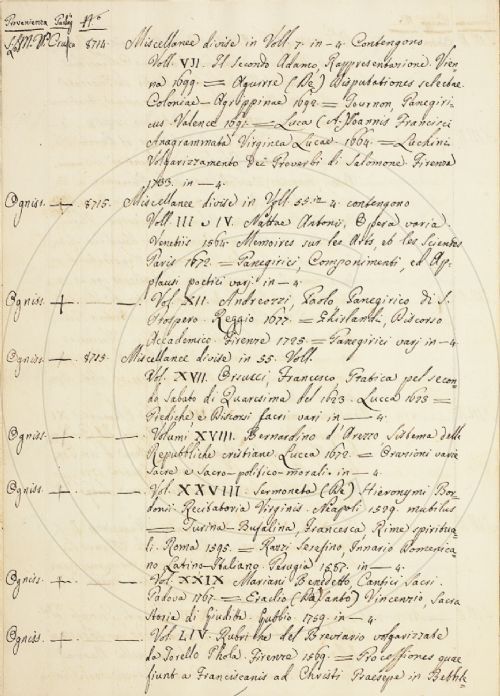 Provenienza Palch. N.º
S. M. Na Croce 8714. Miscellanee divise in Voll. 7. in - 4. Contengono
Voll. VII. Il Secondo Adamo, Rappresentazione. Vien-
na 1699. = Aguirre (De) Disputationes selectae.
Coloniae-Agruppinae 1692. = Tournon, Panegiri-
cus. Valence 1691. = Luca (A. Joannis Francisci
Anagrammata Virginea Lucae. 1664. = Luchini
Volgarizzamento Dei Proverbi di Salomone. Firenze
1733. in - 4.
Ogniss. + 8715. Miscellanee divise in Voll. 55. in 4. contengono
Voll. III e IV. Mattae Antonii, Opera varia.
Venetiis 1564. Memoires sur les Arts, et les Sciences
Paris 1672. = Panegirici, Componimenti, ed Ap-
plausi poetici varj. in - 4.
Ogniss. + — Vol. XII. Andreozzi, Paolo Panegirico di S.
Prospero. Reggio 1677. = Ghirlandi, Discorso
Accademico. Firenze 1725. = Panegirici varj in - 4.
Ogniss. — 8715. Miscellanee divise in 55. Voll.
Vol. XVII. Orsucci, Francesco, Pratica pel secon-
do Sabato di Quaresima del 1623. Lucca 1623 =
Prediche, e Discorsi sacri vari in — 4.
Ogniss. — — Volumi XVIII. Bernardino d'Arezzo Sistema delle
Repubbliche cristiane. Lucca 1672. = Orazioni varie
Sacre e Sacro-politico-morali. in - 4.
Ogniss. + — Vol. XXVIII. Sermoneta (De) Hieronymi Bor-
donii. Recitatoria Virginis. Neapoli 1599. mutilus
= Turina-Bufalina, Francesca, Rime spiritua-
li. Roma 1595. = Razzi Serafino, Innario Domenica-
no Latino-Italiano. Perugia 1587. in - 4.
Ogniss. + — Vol. XXIX Mariani Benedetto, Cantici Sacri.
Padova 1767. = Eraclio (Da Santo) Vincenzio, Sacra
Storia di Giuditta. Gubbio. 1759. in - 4.
Ogniss. — — Vol. LIV. Rubriche del Breviario volgarizzate
da Torello Phola. Firenze 1569. = Processiones quae
fiunt a Franciscanis ad Christi Praesepe in Bethle-